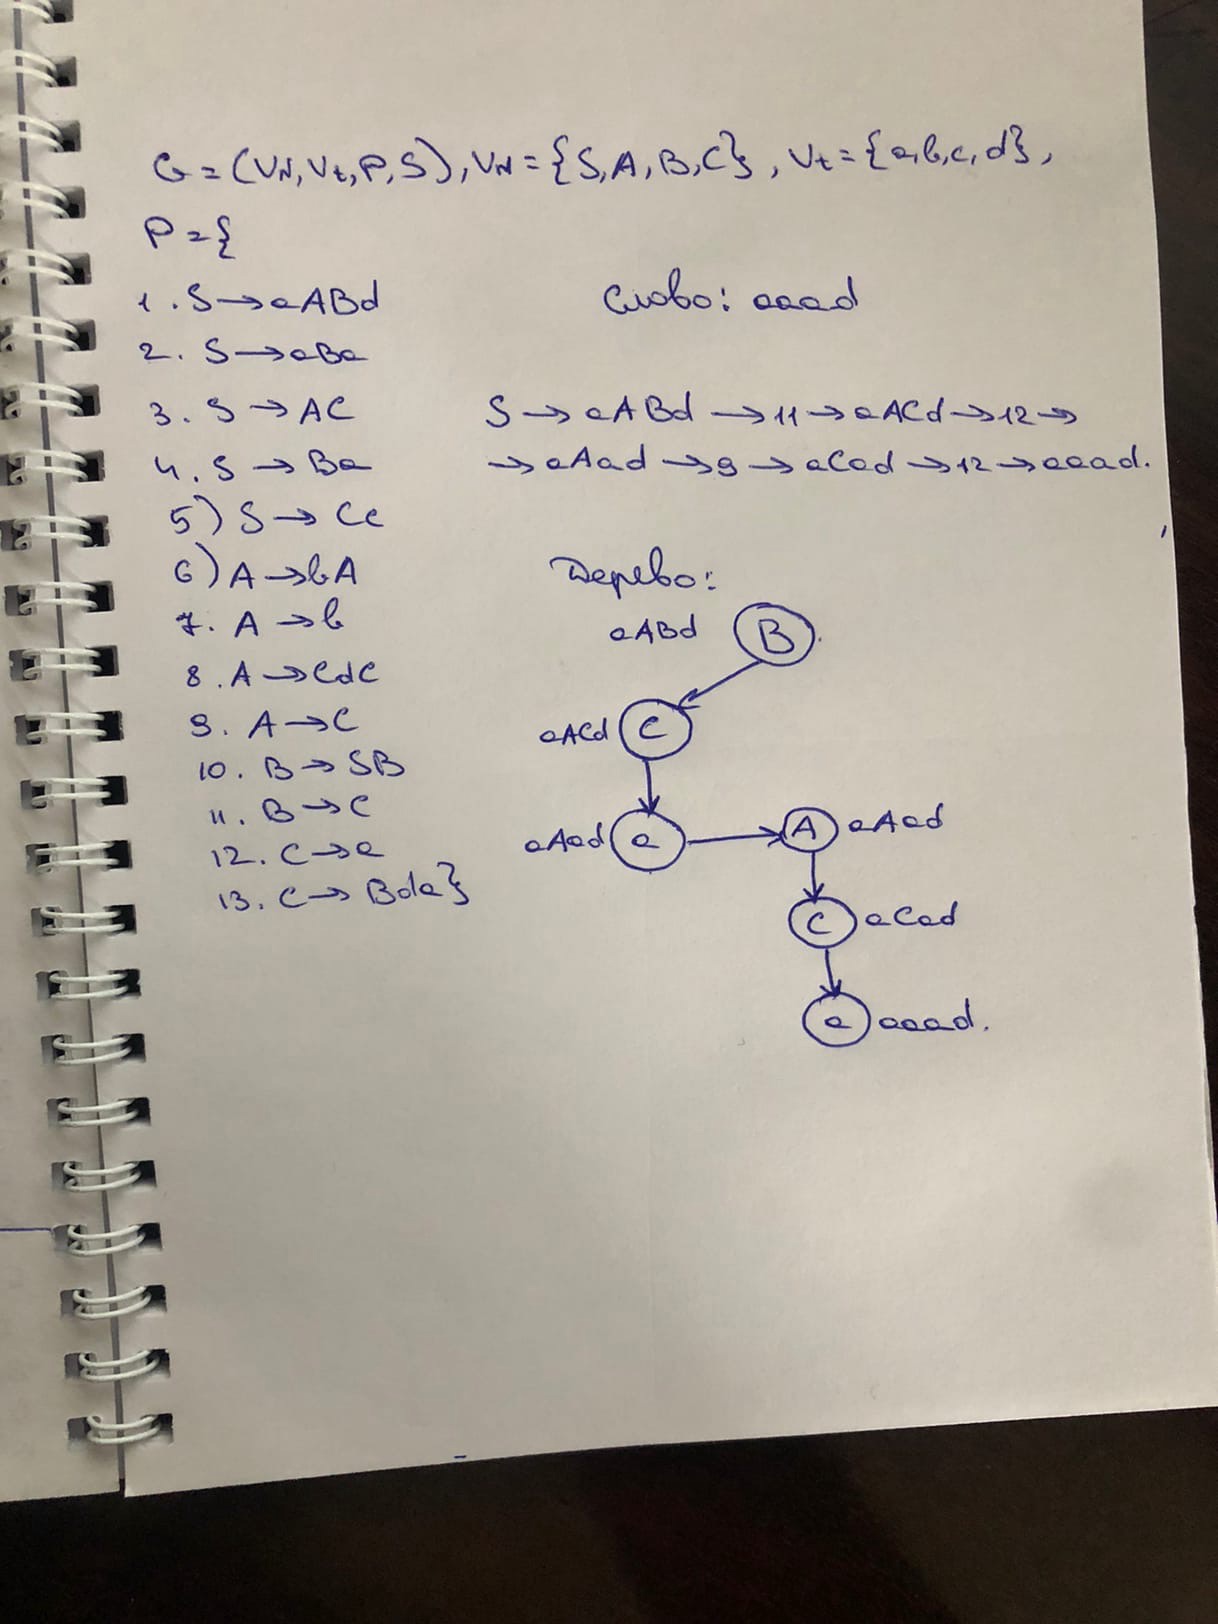 G = (VN, Vt, P, S), VN = {S, A, B, C}, Vt = {a, b, c, d},
P = {
1. S → aABd
2. S → aBa
3. S → AC
4. S → Ba
5) S → Cc
6) A → bA
7. A → b
8. A → CdC
9. A → C
10. B → SB
11. B → C
12. C → a
13. C → Bda}
Слово: aaad
S → aABd → 11 → aACd → 12 →
→ aAad → 9 → aCad → 12 → aaad.
Дерево:
aABd B
aACd C
aAad a A aAad
C aCad
a aaad.